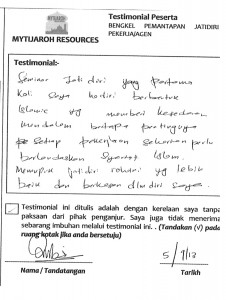 Testimonial Peserta
BENGKEL PEMANTAPAN JATIDIRI
PEKERJA/AGEN
MYTIJAROH RESOURCES
Testimonial:-
Seminar Jati diri yang pertama
kali saya hadiri berbentuk
Islamic yg memberi kesedaran
mendalam betapa pentingnya
setiap pekerjaan seharian perlu
berlandaskan Syariat Islam.
Memupuk jatidiri rohani yg lebih
baik dan berkesan diri saya.
Testimonial ini ditulis adalah dengan kerelaan saya tanpa
paksaan dari pihak penganjur. Saya juga tidak menerima
sebarang imbuhan melalui testimonial ini. . (Tandakan (√) pada
ruang kotak jika anda bersetuju)
Nama / Tandatangan
Tarikh